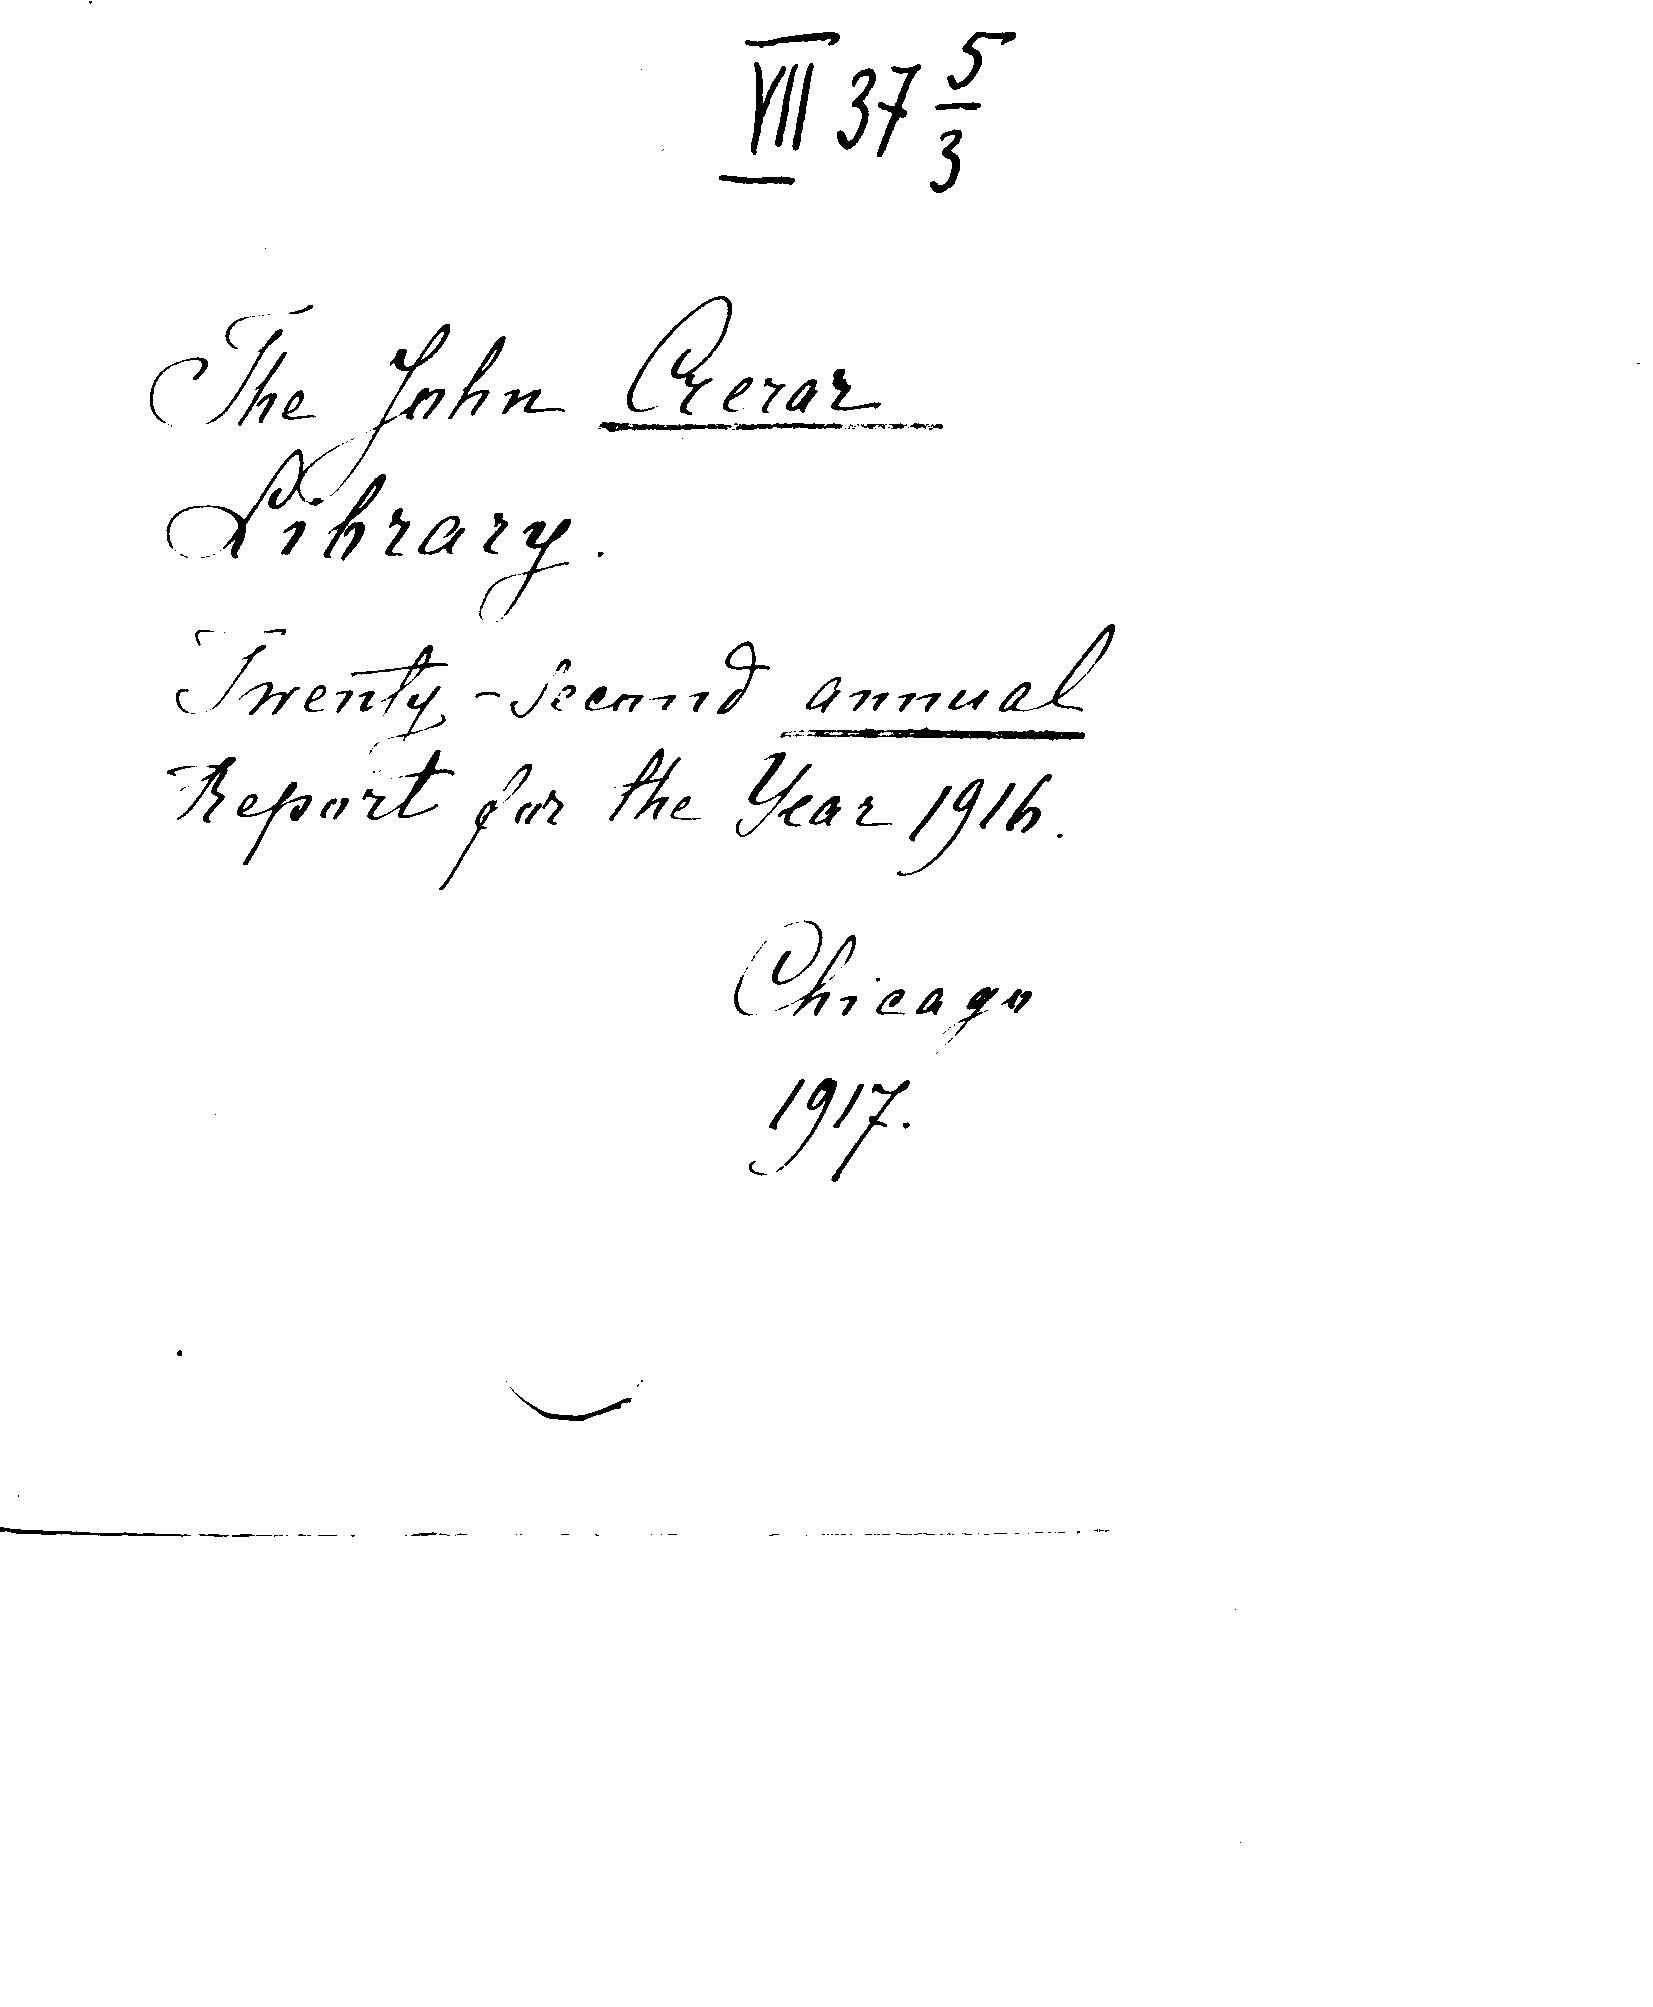 VII 37 5/3
The John Crerar
Library.
Twenty-second annual
Report for the Year 1916.
Chicago
1917.